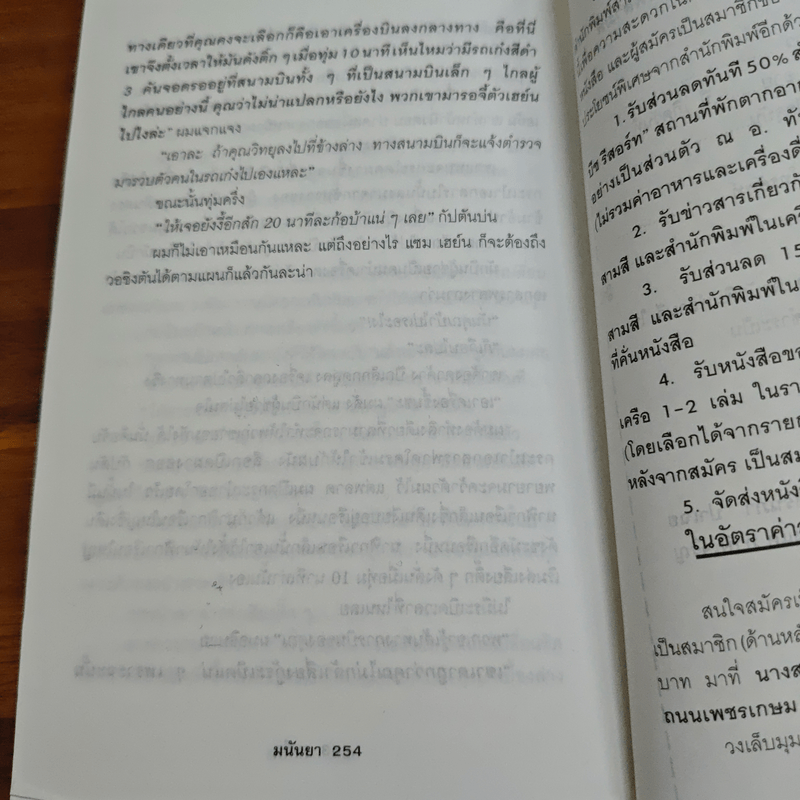 ทางเดียวที่คุณคงจะเลือกก็คือเอาเครื่องบินลงกลางทาง คือที่นี่
เขาจึงตั้งเวลาให้มันดังติ๊ก ๆ เมื่อทุ่ม 10 นาที เห็นไหมว่ามีรถเก๋งสีดำ
3 คันจอดรออยู่ที่สนามบินทั้ง ๆ ที่เป็นสนามบินเล็ก ๆ ไกลผู้
ไกลคนอย่างนี้ คุณว่าไม่น่าแปลกหรือยังไง พวกเขามารอจี้ตัวเฮย์น
ไปไงล่ะ" ผมแจกแจง
"เอาละ ถ้าคุณวิทยุลงไปที่ข้างล่าง ทางสนามบินก็จะแจ้งตำรวจ
มารวบตัวคนในรถเก๋งไปเองแหละ"
ขณะนั้นทุ่มครึ่ง
"ให้เจอยังงี้อีกสัก 20 นาทีละก้อบ้าแน่ ๆ เลย" กัปตันบ่น
ผมก็ไม่เอาเหมือนกันแหละ แต่ถึงอย่างไร แซม เฮย์น ก็จะต้องถึง
วอชิงตันได้ตามแผนก็แล้วกันละน่า
มนันยา 254
เพื่อความสะดวกใน
หนังสือ และผู้สมัครเป็นสมาชิกชม
ประโยชน์พิเศษจากสำนักพิมพ์อีกด้ว
1. รับส่วนลดทันที 50% ส
บีช รีสอร์ท" สถานที่พักตากอา
อย่างเป็นส่วนตัว ณ อ. ทั
(ไม่รวมค่าอาหารและเครื่องดื่
2. รับข่าวสารเกี่ยวกั
สามสี และสำนักพิมพ์ในเครื
3. รับส่วนลด 15
สามสี และสำนักพิมพ์ใน
ที่คั่นหนังสือ
4. รับหนังสือขอ
เครือ 1-2 เล่ม ในรา
(โดยเลือกได้จากรายก
หลังจากสมัคร เป็นสม
5. จัดส่งหนังสื
ในอัตราค่าร
สนใจสมัครเป็
เป็นสมาชิก (ด้านหลั
บาท มาที่ นางส
ถนนเพชรเกษม
วงเล็บมุม